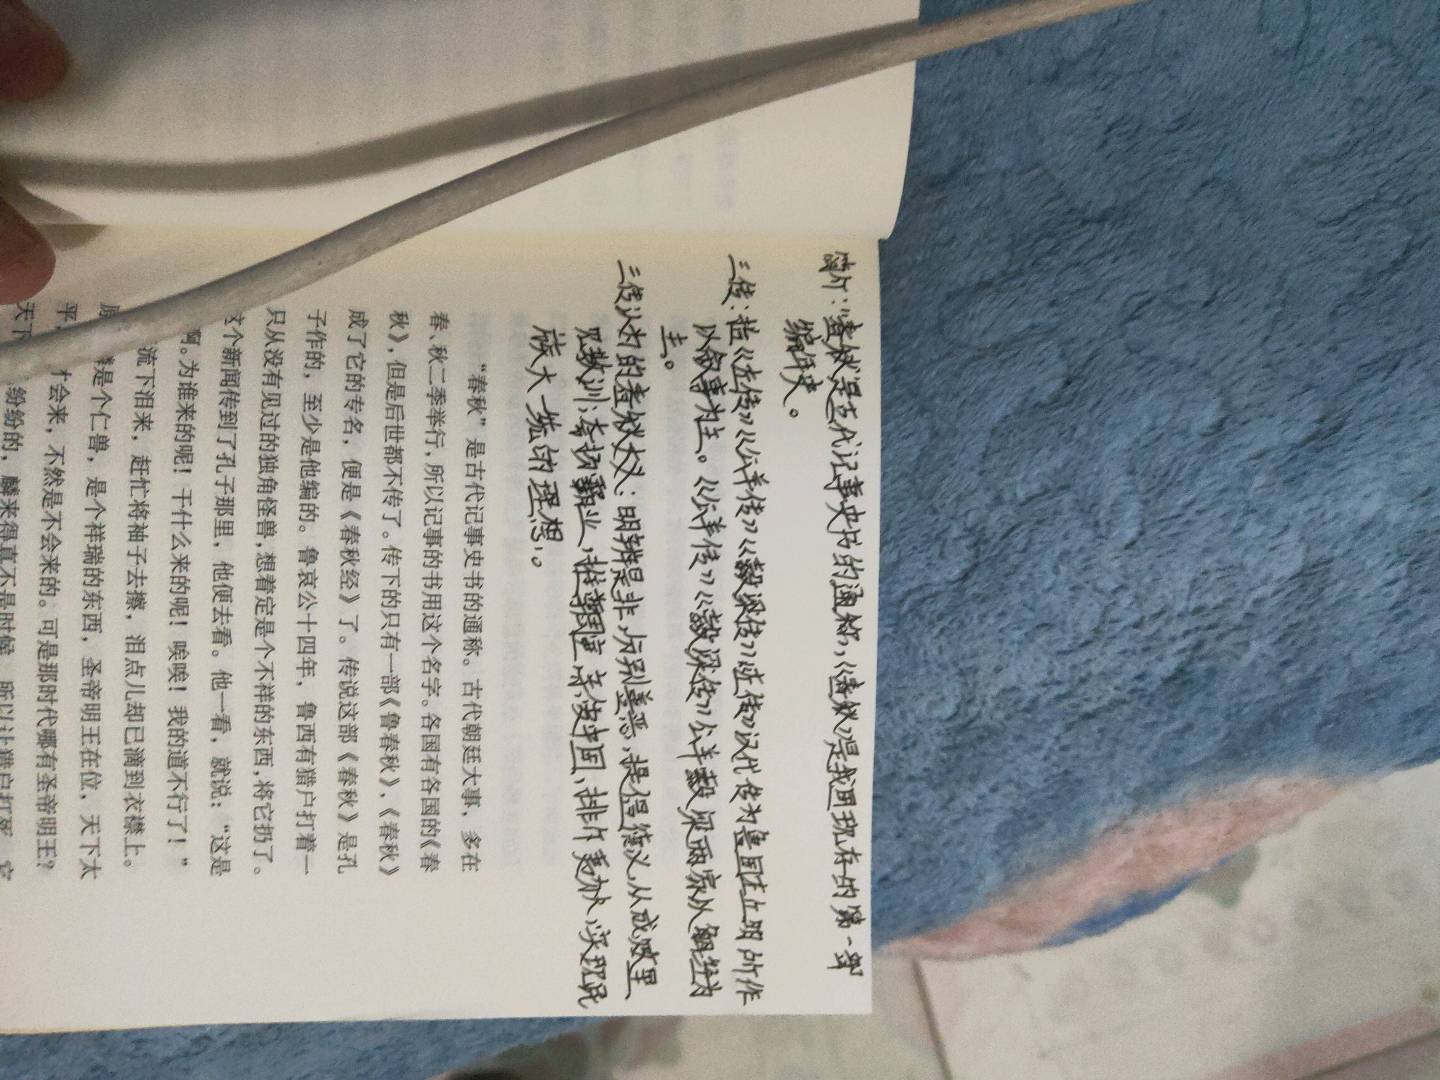 简介:“春秋是古代记事史书的通称,《春秋》是我国现存的第一部
编年史。
三传:指《左传》《公羊传》《穀梁传》《左传》汉代传为鲁国左丘明所作
以叙事为主。《公羊传》《穀梁传》公羊穀梁两家从解经为
主。
三传认为的春秋大义:明辨是非,分别善恶,提倡德义,从成败里
见教训;夸扬霸业,推尊周室,亲爱中国,排斥夷狄,实现民
族大一统的理想。
“春秋”是古代记事史书的通称。古代朝廷大事,多在
春、秋二季举行,所以记事的书用这个名字。各国有各国的《春
秋》,但是后世都不传了。传下的只有一部《鲁春秋》,《春秋》
成了它的专名,便是《春秋经》了。传说这部《春秋》是孔
子作的,至少是他编的。鲁哀公十四年,鲁西有猎户打着一
只从没有见过的独角怪兽,想着定是个不祥的东西,将它扔了。
这个新闻传到了孔子那里,他便去看。他一看,就说:“这是
啊。为谁来的呢!干什么来的呢!唉唉!我的道不行了!”
流下泪来,赶忙将袖子去擦,泪点儿却已滴到衣襟上。
是个仁兽,是个祥瑞的东西,圣帝明王在位,天下太
平,才会来,不然是不会来的。可是那时代哪有圣帝明王?
天下 纷纷的,麟来得真不是时候,所以让猎户打死,它